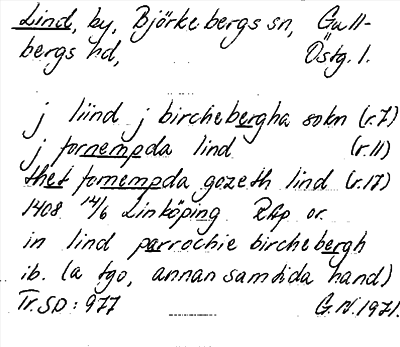 Lind, by, Björkebergs sn, Gull-
bergs hd, Östg. l.
j liind j birchebergha sokn (r.7)
j fornempda lind (r.11)
thet fornempda gozeth lind (r.17)
1408 14/6 Linköping RAp or.
in lind parrochie birchebergh
ib. (a tgo, annan samtida hand)
Tr. SD: 977 G.N. 1971.